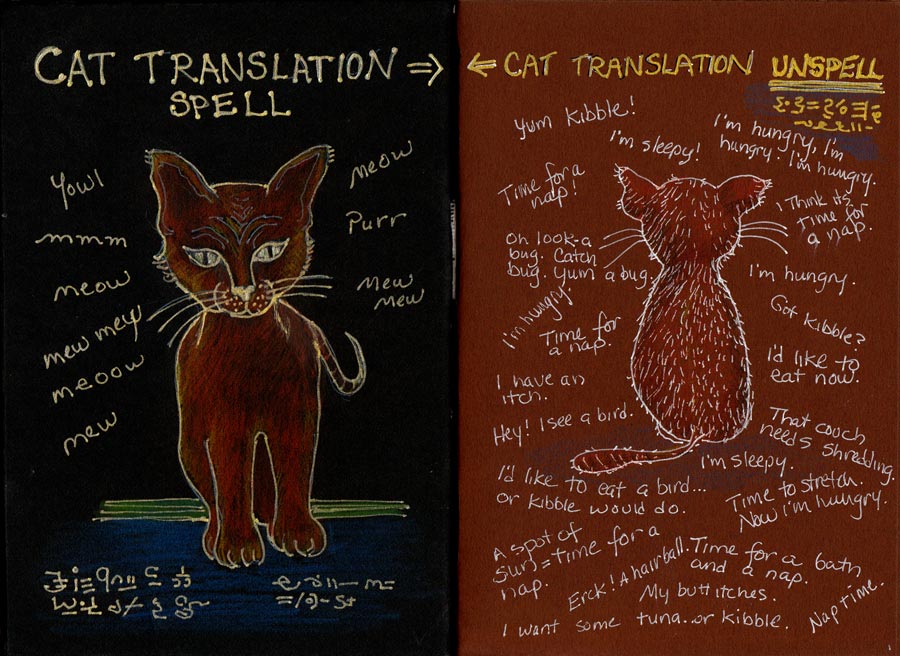 CAT TRANSLATION ⇒
SPELL
Yowl
mmm
meow
mew mew
meoow
mew
meow
Purr
Mew
mew
← CAT TRANSLATION UNSPELL
Yum kibble!
I'm sleepy!
I'm hungry, I'm
hungry. I'm hungry.
Time for a
nap!
I Think it's
Time for
a nap.
Oh look-a
bug. Catch
bug. Yum a bug.
I'm hungry.
I'm hungry.
Time for
a nap.
Got kibble?
I'd like to
eat now.
I have an
itch.
Hey! I see a bird.
That couch
needs shredding.
I'm sleepy.
I'd like to eat a bird...
or kibble would do.
Time to stretch.
Now I'm hungry.
A spot of
sun = time for a
nap.
Erck! A hairball.
Time for a bath
and a nap.
My butt itches.
Nap time.
I want some tuna..or kibble.